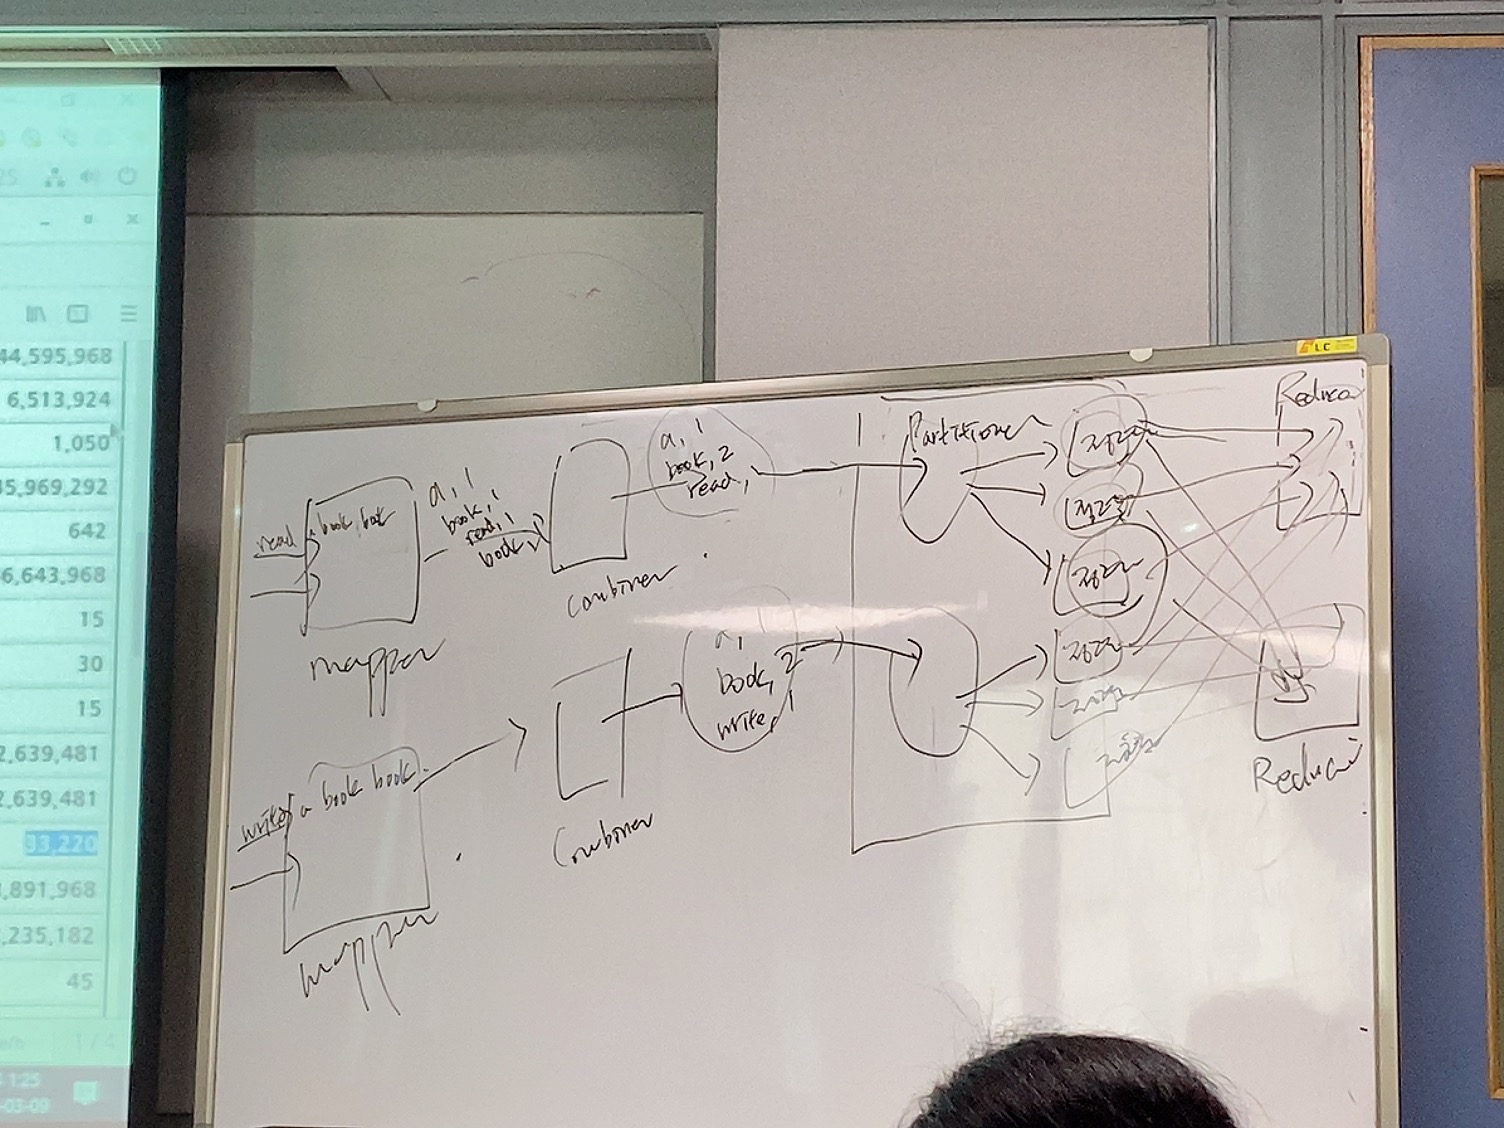 44,595,968
6,513,924
1,050
35,969,292
642
6,643,968
15
30
15
2,639,481
2,639,481
93,220
,891,968
,235,182
45
1 / 4
1:25
-03-09
LC
read
book, book
a, 1
book, 1
read, 1
book, 1
mapper
Combiner
a, 1
book, 2
read,
Partitioner
정렬
정렬
정렬
Reducer
write a book book
mapper
Combiner
a, 1
book, 2
write, 1
정렬
Reducer